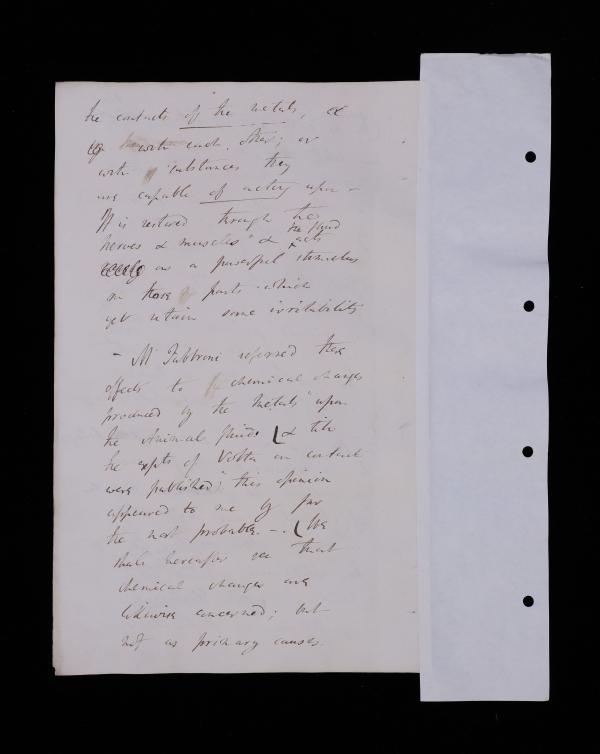 the contacts of the metals, &
with each other; or
with substances they
are capable of acting upon -
It is restored through the
nerves & muscles" & the fluid
acts
as a powerful stimulus
on those parts which
yet retain some irritability
- Mr Fabbroni referred these
effects to chemical changes
produced by the "Metals" upon
the Animal fluids & till
the expts of Volta on contact
were published; this opinion
appeared to me by far
the most probable. -. We
shall hereafter see that
chemical changes are
likewise concerned; but
not as primary causes.